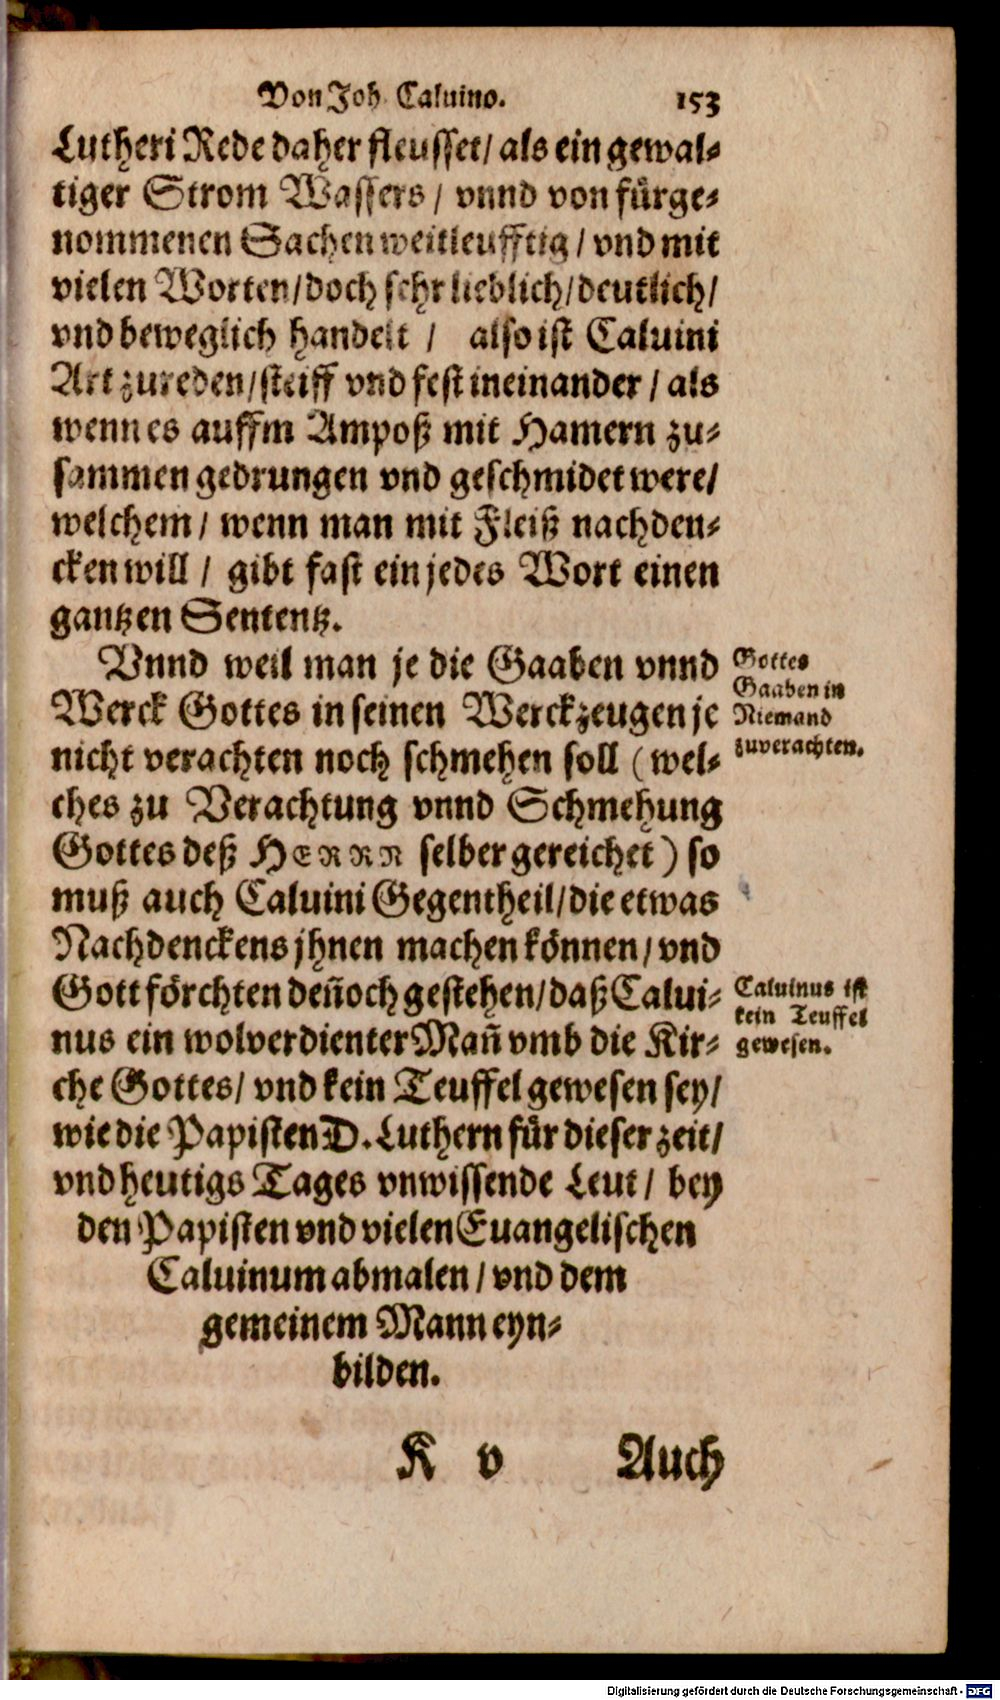 Von Joh. Caluino. 153
Lutheri Rede daher fleusset / als ein gewal-
tiger Strom Wassers / vnnd von fürge-
nommenen Sachen weitleufftig / vnd mit
vielen Worten / doch sehr lieblich / deutlich /
vnd beweglich handelt / also ist Caluini
Art zu reden / steiff vnd fest ineinander / als
wenn es auffm Ampoß mit Hamern zu-
sammen gedrungen vnd geschmidet were /
welchem / wenn man mit Fleiß nachden-
cken will / gibt fast ein jedes Wort einen
gantzen Sententz.
Vnnd weil man je die Gaaben vnnd
Werck Gottes in seinen Werckzeugen je
nicht verachten noch schmehen soll (wel-
ches zu Verachtung vnnd Schmehung
Gottes deß HERRN selber gereichet) so
muß auch Caluini Gegentheil / die etwas
Nachdenckens jhnen machen können / vnd
Gott förchten deñoch gestehen / daß Calui-
nus ein wolverdienter Mañ vmb die Kir-
che Gottes / vnd kein Teuffel gewesen sey /
wie die Papisten D. Luthern für dieser zeit /
vnd heutigs Tages vnwissende Leut / bey
den Papisten vnd vielen Euangelischen
Caluinum abmalen / vnd dem
gemeinem Mann eyn-
bilden.
Gottes
Gaaben in
Niemand
zuverachten.
Caluinus ist
kein Teuffel
gewesen.
K v Auch
Digitalisierung gefördert durch die Deutsche Forschungsgemeinschaft - DFG